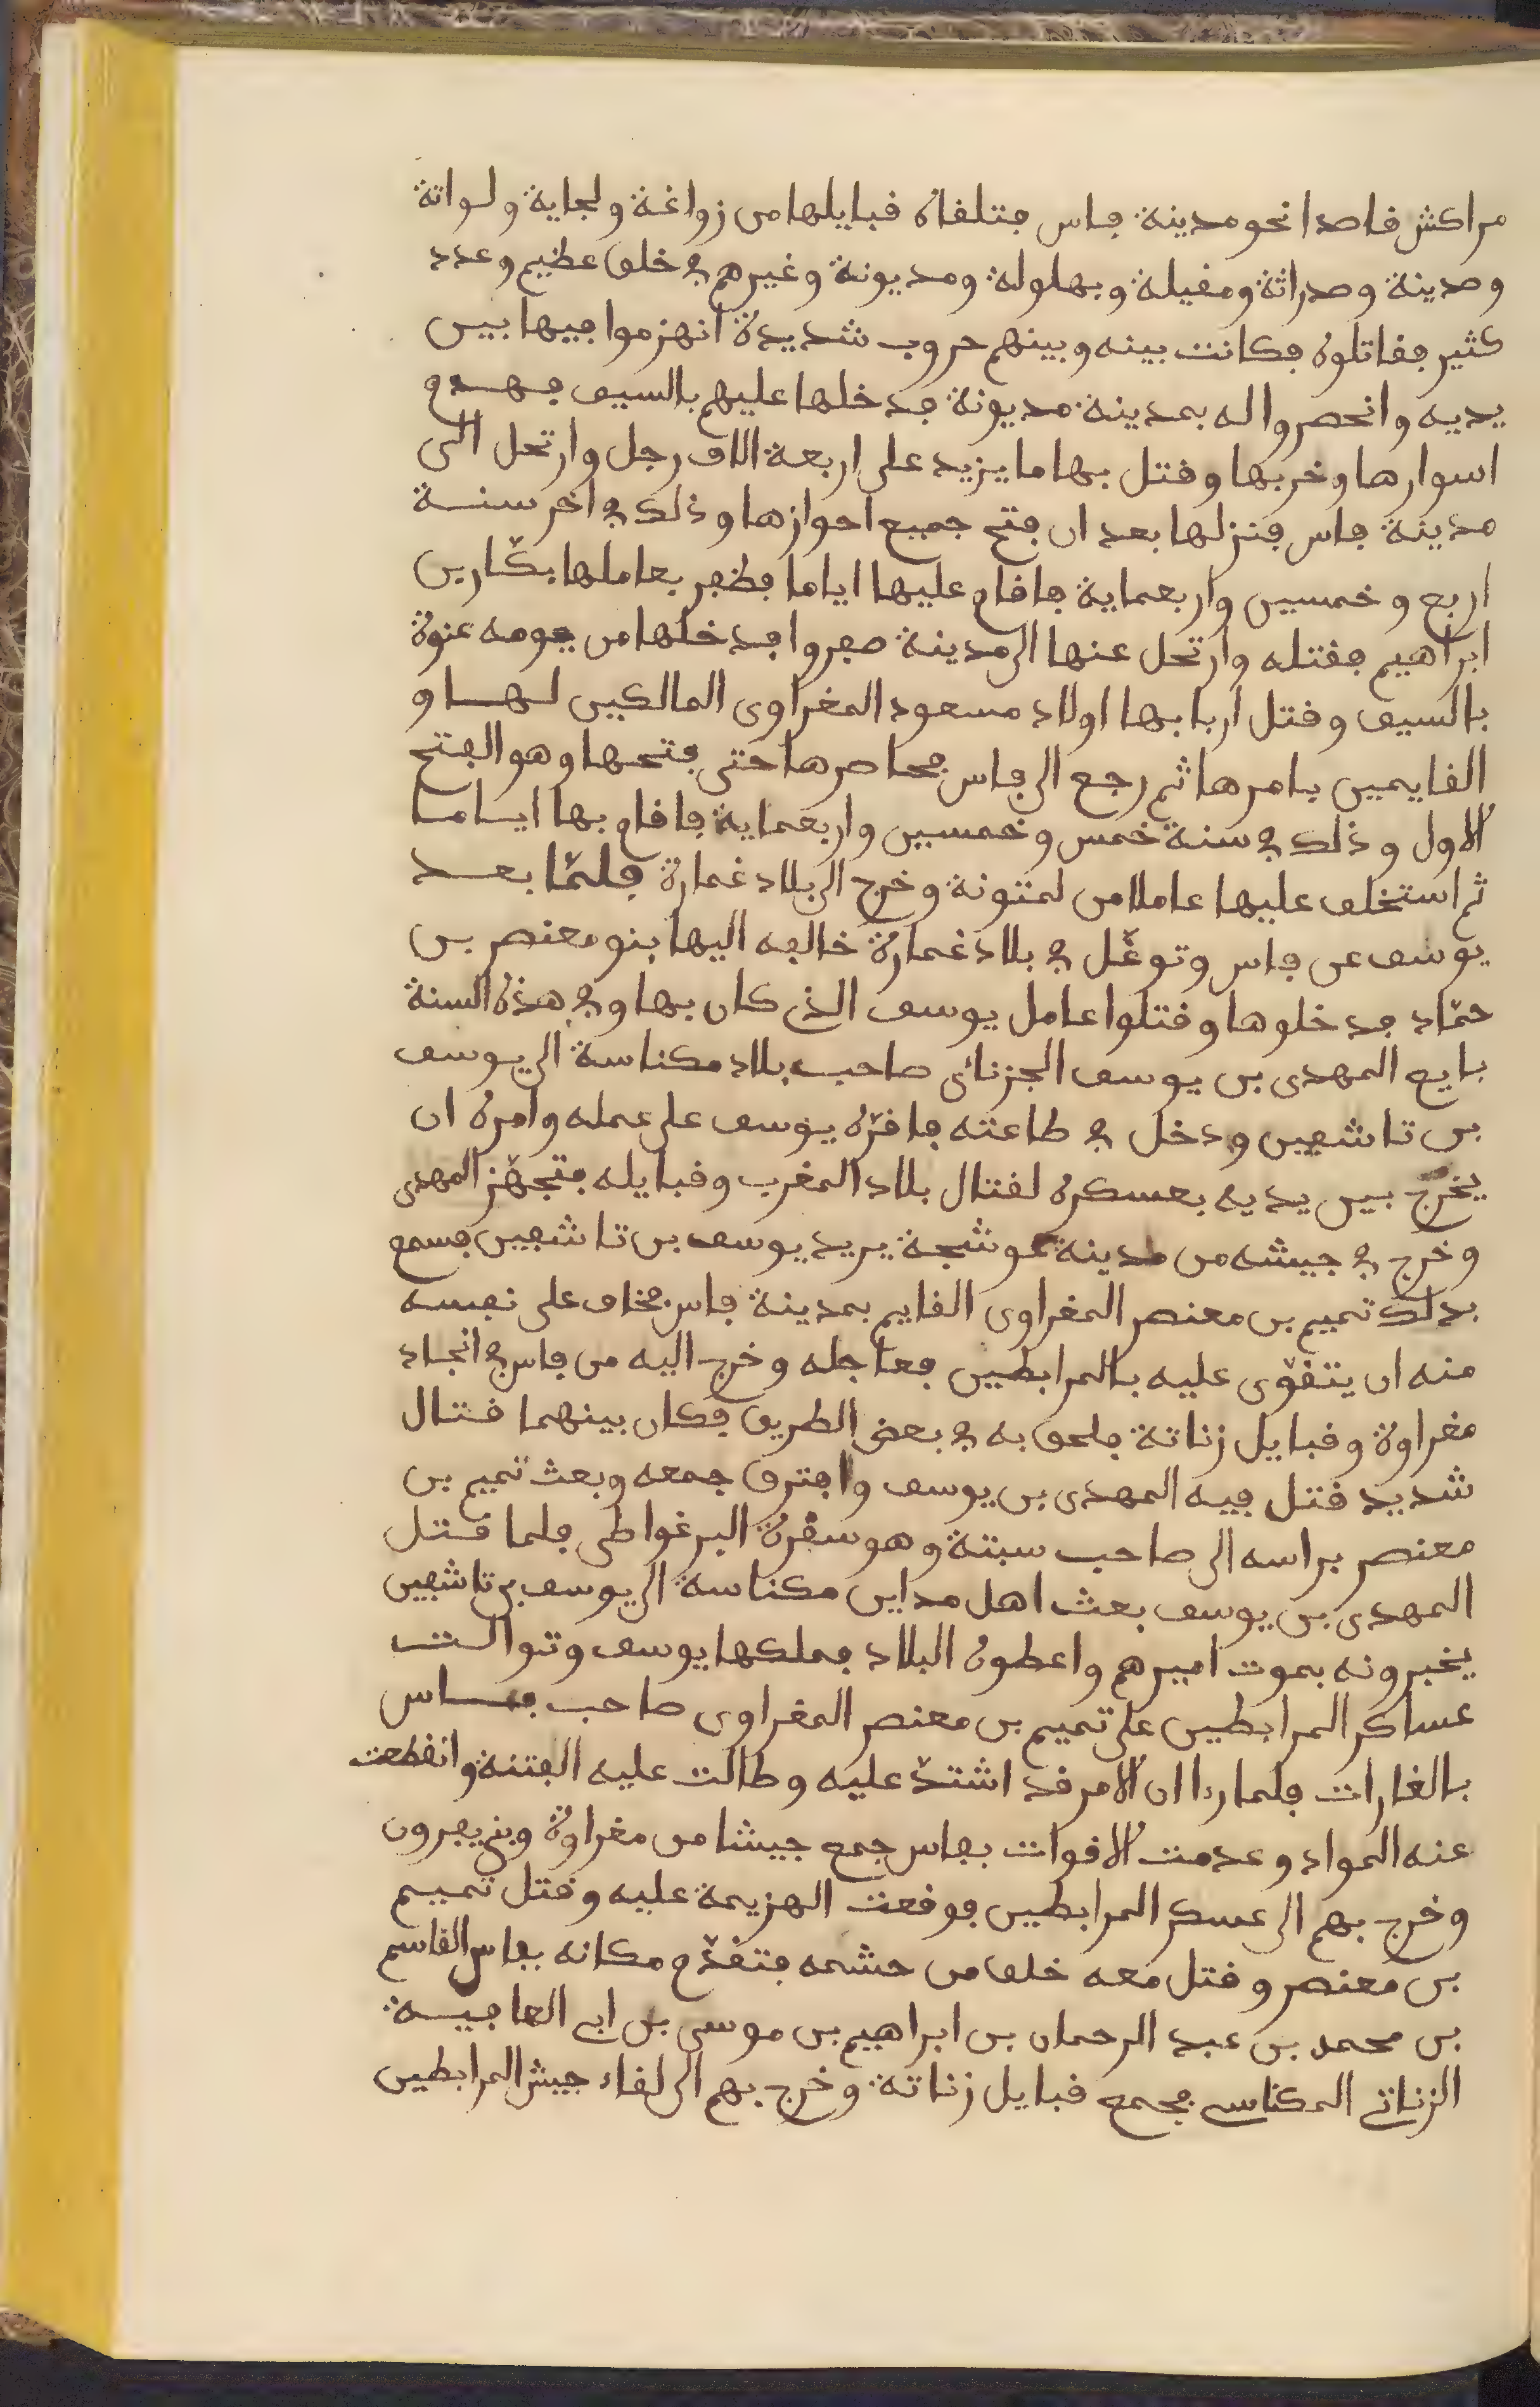 مراكش قاصدا نحو مدينة فاس فتلقاه قبايلها من زواغة ولجاية ولواتة
وصدينة وصدراتة ومغيلة وبهلولة ومديونة وغيرهم في خلق عظيم وعدد
كثير فقاتلوه فكانت بينه وبينهم حروب شديدة انهزموا فيها بين
يديه وانحصروا له بمدينة مديونة فدخلها عليهم بالسيف فهدم
اسوارها وخربها وقتل بها ما يزيد على اربعة الاف رجل وارتحل الى
مدينة فاس فنزلها بعد ان فتح جميع احوازها وذلك في اخر سنة
اربع وخمسين واربعماية فاقام عليها اياما فظفر بعاملها بكّار بن
ابراهيم فقتله وارتحل عنها الى مدينة صفروا فدخلها من يومه عنوة
بالسيف وقتل اربابها اولاد مسعود المغراوى المالكين لها و
القايمين بامرها ثم رجع الى فاس فحاصرها حتى فتحها وهو الفتح
الاول وذلك في سنة خمس وخمسين واربعماية فاقام بها اياما
ثم استخلف عليها عاملا من لمتونة وخرج الى بلاد غمارة فلمّا بعد
يوسف عن فاس وتوغّل في بلاد غمارة خالفه اليها بنو معنصر بن
حمّاد فدخلوها وقتلوا عامل يوسف الذى كان بها وفي هذه السنة
بايع المهدى بن يوسف الجزنائى صاحب بلاد مكناسة الى يوسف
بن تاشفين ودخل في طاعته فاقرّه يوسف على عمله وامره ان
يخرج بين يديه بعسكره لقتال بلاد المغرب وقبايله فتجهّز المهدى
وخرج في جيشه من مدينة عوشجة يريد يوسف بن تاشفين فسمع
بذلك تميم بن معنصر المغراوى القايم بمدينة فاس فخاف على نفسه
منه ان يتقوّى عليه بالمرابطين فعاجله وخرج اليه من فاس في انجاد
مغراوة وقبايل زناتة فلحق به في بعض الطريق فكان بينهما قتال
شديد قتل فيه المهدى بن يوسف وافترق جمعه وبعث تميم بن
معنصر براسه الى صاحب سبتة وهو سقرة البرغواطى فلما قتل
المهدى بن يوسف بعث اهل مداين مكناسة الى يوسف بن تاشفين
يخبرونه بموت اميرهم واعطوه البلاد فملكها يوسف وتوالت
عساكر المرابطين على تميم بن معنصر المغراوى صاحب فاس
بالغارات فلما راا ان الامر قد اشتدّ عليه وطالت عليه الفتنة وانقطعت
عنه المواد وعدمت الاقوات بفاس جمع جيشا من مغراوة وبنى يفرون
وخرج بهم الى عسكر المرابطين فوقعت الهزيمة عليه وقتل تميم
بن معنصر وقتل معه خلق من حشمه فتقدّم مكانه بفاس القاسم
بن محمد بن عبد الرحمان بن ابراهيم بن موسى بن ابى العافية
الزناتى المكناسى فجمع قبايل زناتة وخرج بهم الى لقاء جيش المرابطين